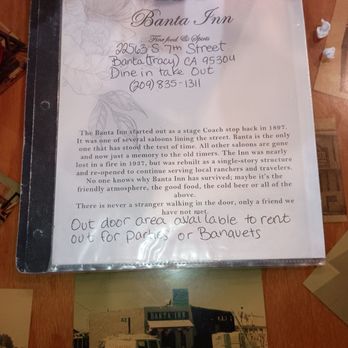 Banta Inn
Fine food & Spirits
22563 S 7th Street
Banta (Tracy) CA 95304
Dine in take Out
(209) 835-1311
The Banta Inn started out as a stage Coach stop back in 1897.
It was one of several saloons lining the street. Banta is the only
one that has stood the test of time. All other saloons are gone
and now just a memory to the old timers. The Inn was nearly
lost in a fire in 1937, but was rebuilt as a single-story structure
and re-opened to continue serving local ranchers and travelers.
No one knows why Banta Inn has survived; maybe it's the
friendly atmosphere, the good food, the cold beer or all of the
above.
There is never a stranger walking in the door, only a friend we
have not met.
Out door area available to rent
out for Parties or Banquets
BANTA INN